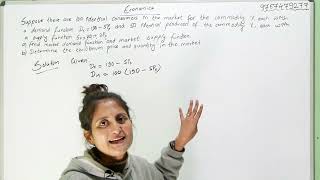 Economics
9957449277
Suppose there are 100 Identical consumers in the market for the commodity X each with
a demand function Dx = 190 - 5Px and 50 Identical producers of the commodity X, each with
a supply function Sx =
a) Find market demand function and market supply function
b) Determine the equilibrium price and quantity in the market
Solution Given
Dx = 190 - 5Px
Dm = 100 (190 - 5Px)